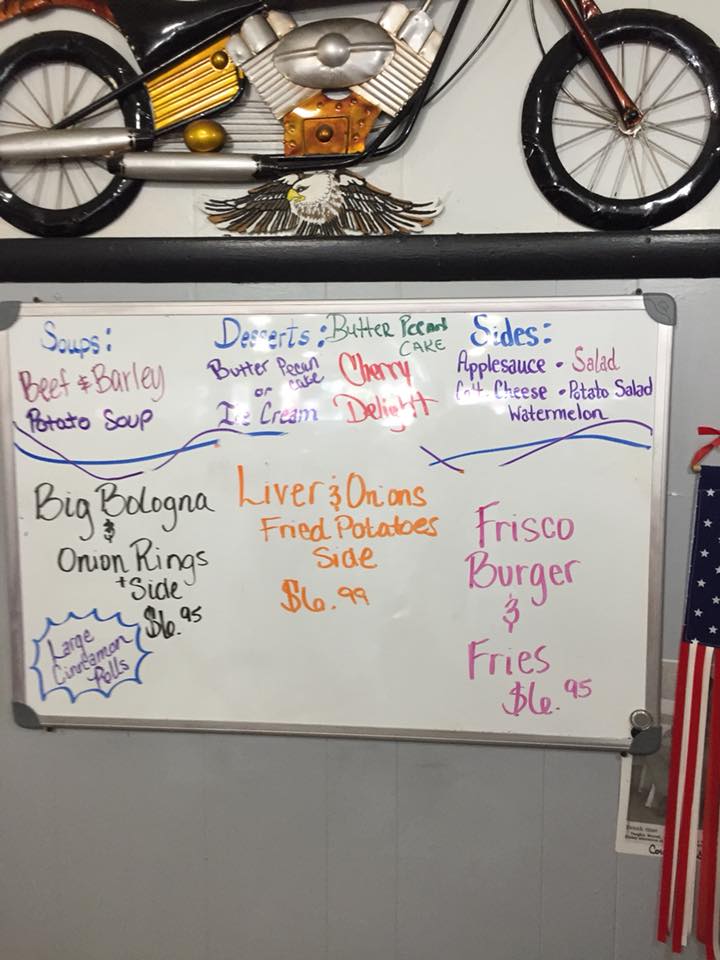 Soups:
Beef & Barley
Potato Soup
Desserts:
Butter Pecan
CAKE
Butter Pecan
or cake
Ice Cream
Cherry
Delight
Sides:
Applesauce • Salad
Cott. Cheese • Potato Salad
Watermelon
Big Bologna
&
Onion Rings
+ Side
$6.95
Large
Cinnamon
Rolls
Liver & Onions
Fried Potatoes
Side
$6.99
Frisco
Burger
&
Fries
$6.95